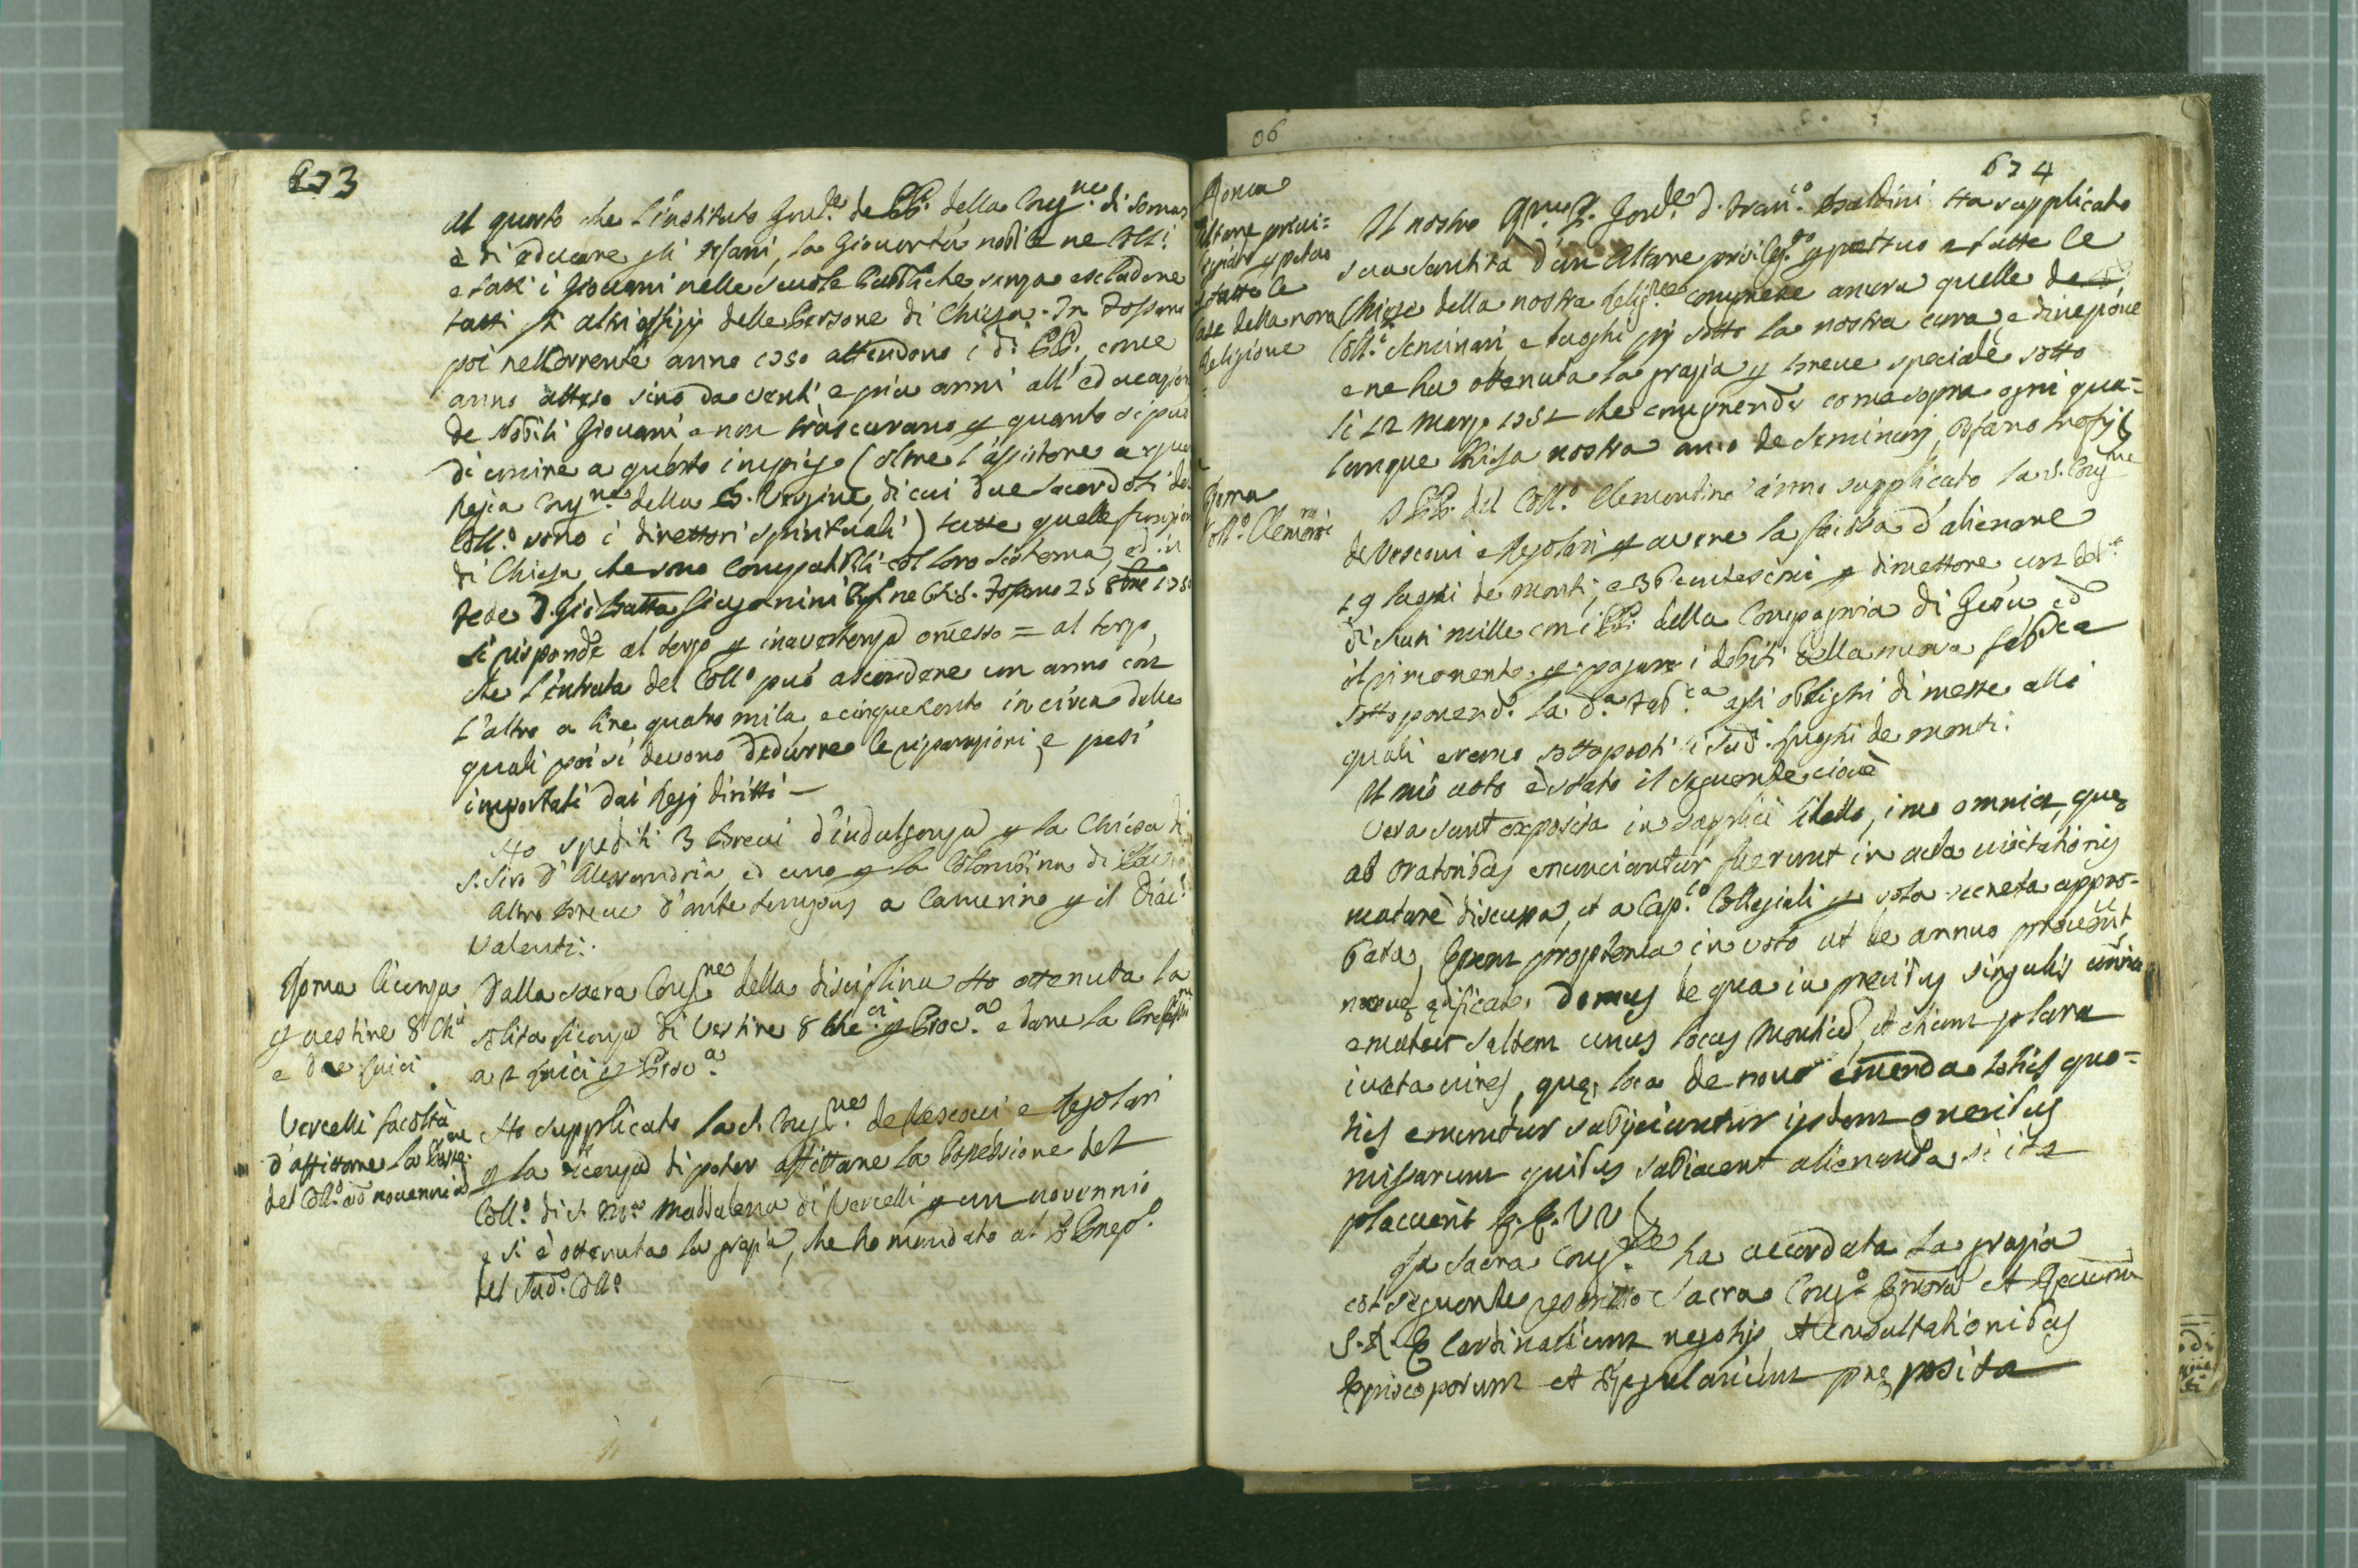 673
Al quarto che l'instituto Gnrle de PP. della Congne di Somas
è di educare gli orfani, la Gioventù nobile ne Coll:
e tutti i Giovani nelle scuole pubbliche senza escludere
tutti gli altri offizij delle Persone di Chiesa. In Fossano
poi nel corrente anno 1750 attendono i d.i PP., come
anno atteso sino da venti e più anni all'educazion
de Nobili Giovani, e non trascurano p quanto si può
di unire a questo impiego (oltre l'assistere a
Regia Congne della B. Vergine, di cui due sacerdoti del
Coll.o sono i direttori spirituali) tutte quelle funzion
di Chiesa, che sono compatibili col loro sistema, ed in
fede D. Gio Batta 25 8bre 175
Si risponde al terzo p inavertenza omesso = al terzo,
che l'entrata del Coll.o può ascendere un anno con
l'altro a lire quatro mila, e cinquecento in circa dalle
quali poi si devono dedurre le riparazioni, e pesi
importati dai Regj diritti —
Ho spediti 3 Brevi d'indulgenza p la Chiesa di
S. Siro d'Alessandria, ed uno p la Colombina di
Altro Breve d'ante tempus a Camerino p il Diac.
Valenti.
Roma licenza
p vestire 8 Chi
e due laici
Dalla sacra Congne della disciplina Ho ottenuta la
solita licenza di vestire 8 Che.ci p Prov.a e dare la
a 2 laici p Prov.a
Vercelli facoltà
d'affittare la
del Coll.o ad novennia
Ho supplicato la S. Congne de Vescovi e Regolari
p la licenza di poter affittare la Possessione del
Coll.o di S. Ma Maddalena di Vercelli p un novennio
e si è ottenuta la grazia, che ho mandato al P. Prep.o
del sud.o Coll.o
06
674
Roma
Altare privi=
legiato p petuo
a tutte le
della nostra
Religione
Il nostro Rmo P. Gnrle D. Fran.co Baldini Ha supplicato
sua Santità d'un Altare privileg.to p petuo a tutte le
Chiese della nostra Religne comprese ancora quelle de
Coll.i Seminari e luoghi pij sotto la nostra cura, e direzione
e ne ha ottenuta la grazia p breve speciale sotto
li 12 Marzo 1751 che comprende come sopra ogni qua=
lunque Chiesa nostra anco de Seminarj,
Roma
Coll.o Clementi.no
I PP. del Coll.o Clementino anno supplicato la S. Congne
de Vescovi e Regolari p avere la facoltà d'alienare
19 luoghi de monti, e 36 centesimi p dimettere un deb.o
di scuti mille con i PP. della Compagnia di Gesù ed
il rimanente p pagare i debiti della nuova fabrica
sottoponend.o la d.a Fab.ca agli oblighi di messe alli
quali erano sottoposti li sud.i luoghi de monti:
Il mio voto è stato il seguente cioè
Vera sunt exposita in supplici libello, imo omnia, quę
ab Oratoribus enunciantur fuerunt in acta visitationis
maturè discussa, et a Cap.lo Collegiali p vota secreta appro=
bata, propterea in voto ut de annuo
novę ędificatę Domus de qua in precibus singulis
ematur saltem unus locus Montium, et etiam plura
iuxta vires, quę loca de novo emenda totis quo=
ties emuntur subijciantur ijsdem oneribus
missarum quibus subiacent alienanda si ita
placuerit E.E. VV
La Sacra Congne ha accordata la grazia
col seguente rescritto Sacra Cong.o
S.R.E. Cardinalium negotijs, et consultationibus
Episcoporum et Regularium pręposita